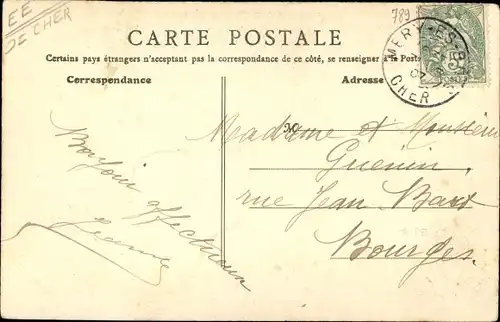 EE
DE CHER
789
CARTE POSTALE
Certains pays étrangers n'acceptant pas la correspondance de ce côté, se renseigner à la Poste
Correspondance
Adresse
MERY-ES-B
07
CHER
Bonjour affectueux
Jeanne
M
Madame et Monsieur
Guenin
rue Jean Bart
Bourges